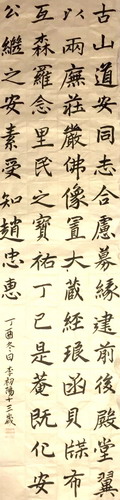 古山道安同志合慮募緣建前後殿堂翼
以兩廡莊嚴佛像置大藏經琅函貝牒布
互森羅念里民之寶祐丁巳是菴既化安
公繼之安素受知趙忠惠
丁酉冬日李初陽十三歲